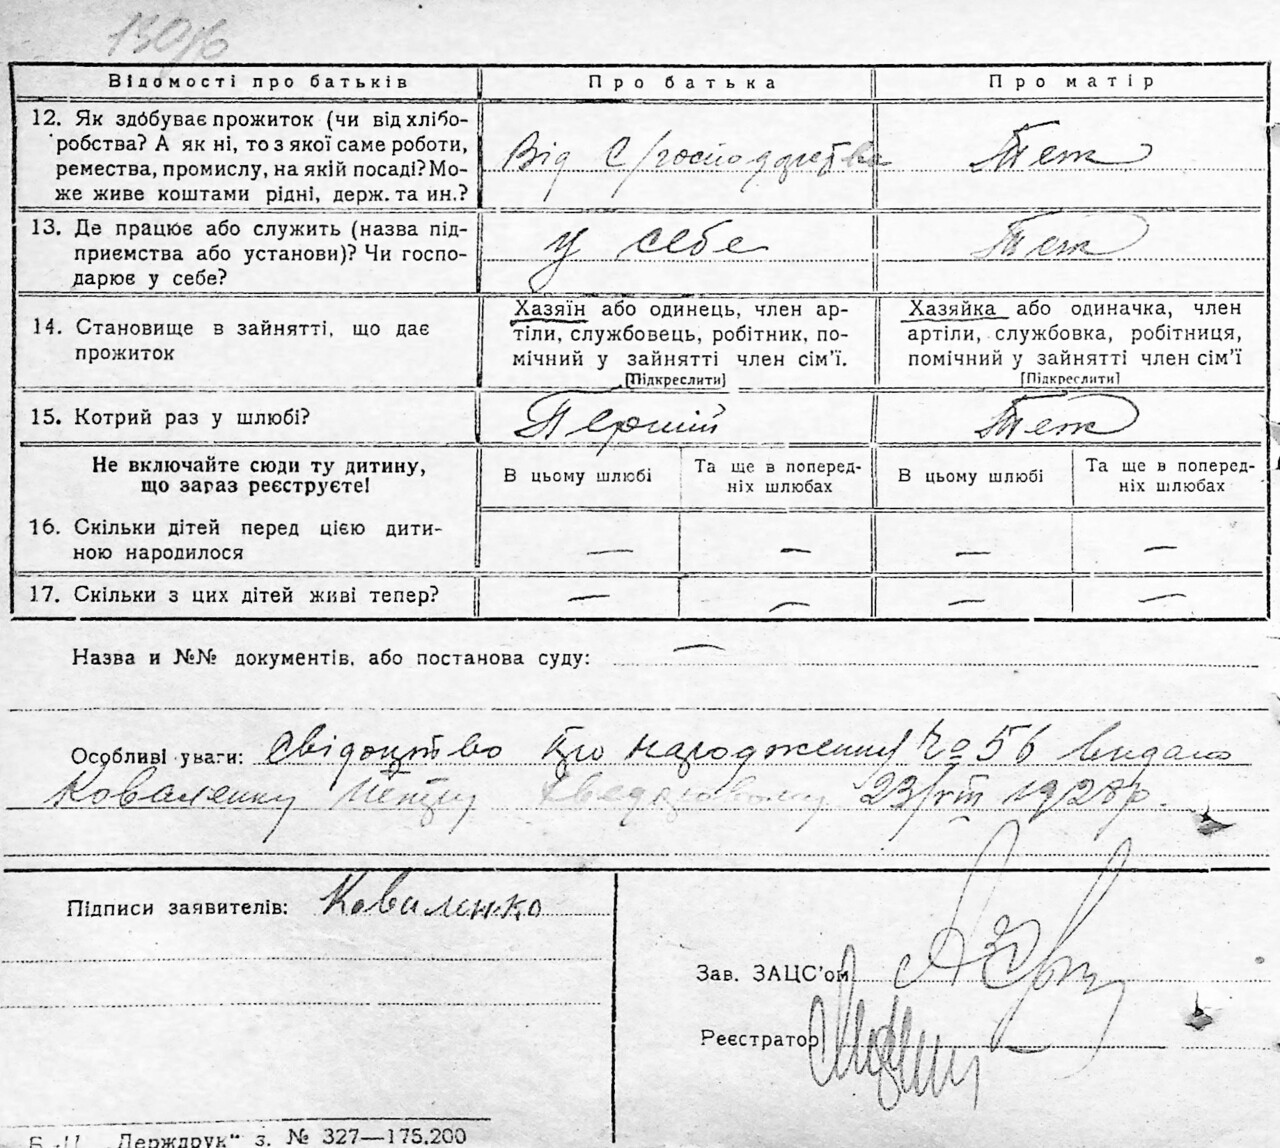 Відомості про батьків Про батька Про матір
12. Як здобуває прожиток (чи від хлібо-
робства? А як ні, то з якої саме роботи,
ремества, промислу, на якій посаді? Мо-
же живе коштами рідні, держ. та ин.?
Від С/господарства Теж
13. Де працює або служить (назва під-
приємства або установи)? Чи госпо-
дарює у себе?
у себе Теж
14. Становище в зайнятті, що дає
прожиток
Хазяїн або одинець, член ар-
тіли, службовець, робітник, по-
мічний у зайнятті член сім'ї.
[Підкреслити]
Хазяйка або одиначка, член
артіли, службовка, робітниця,
помічний у зайнятті член сім'ї
[Підкреслити]
15. Котрий раз у шлюбі? Перший Теж
Не включайте сюди ту дитину,
що зараз реєструєте!
В цьому шлюбі
Та ще в поперед-
ніх шлюбах
В цьому шлюбі
Та ще в поперед-
ніх шлюбах
16. Скільки дітей перед цією дити-
ною народилося
— — — —
17. Скільки з цих дітей живі тепер? — — — —
Назва и №№ документів, або постанова суду: —
Особливі уваги: Свідоцтво про народження № 56 видано
Коваленку 23/VIII 1928 р.
Підписи заявителів: Коваленко
Зав. ЗАЦС'ом
Реєстратор
„Держдрук" з. № 327—175.200